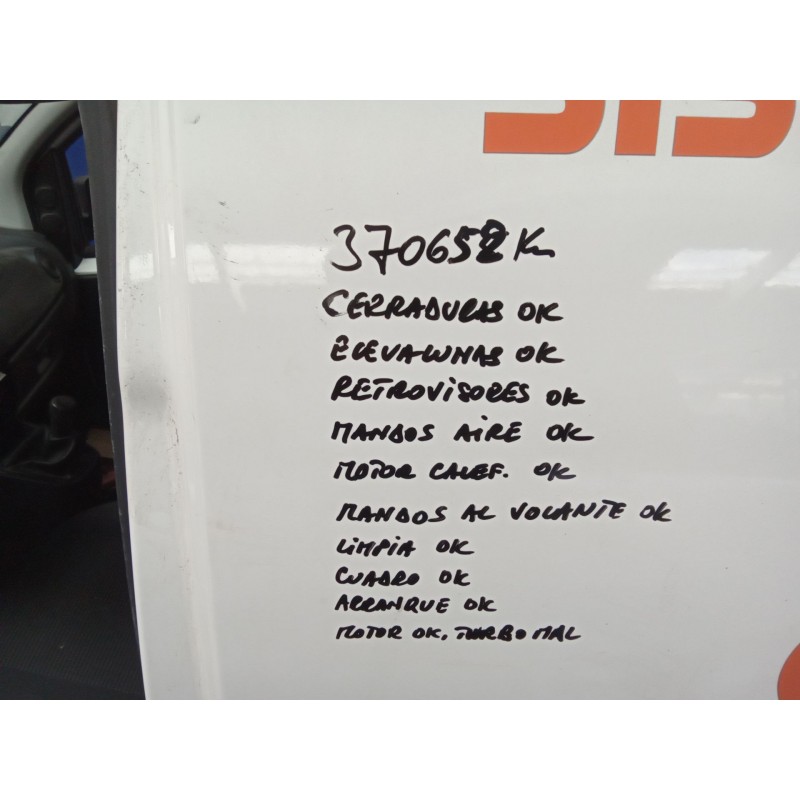 SIS
370652 Km
CERRADURAS OK
ELEVALUNAS OK
RETROVISORES OK
MANDOS AIRE OK
MOTOR CALEF. OK
MANDOS AL VOLANTE OK
LIMPIA OK
CUADRO OK
ARRANQUE OK
MOTOR OK, TURBO MAL